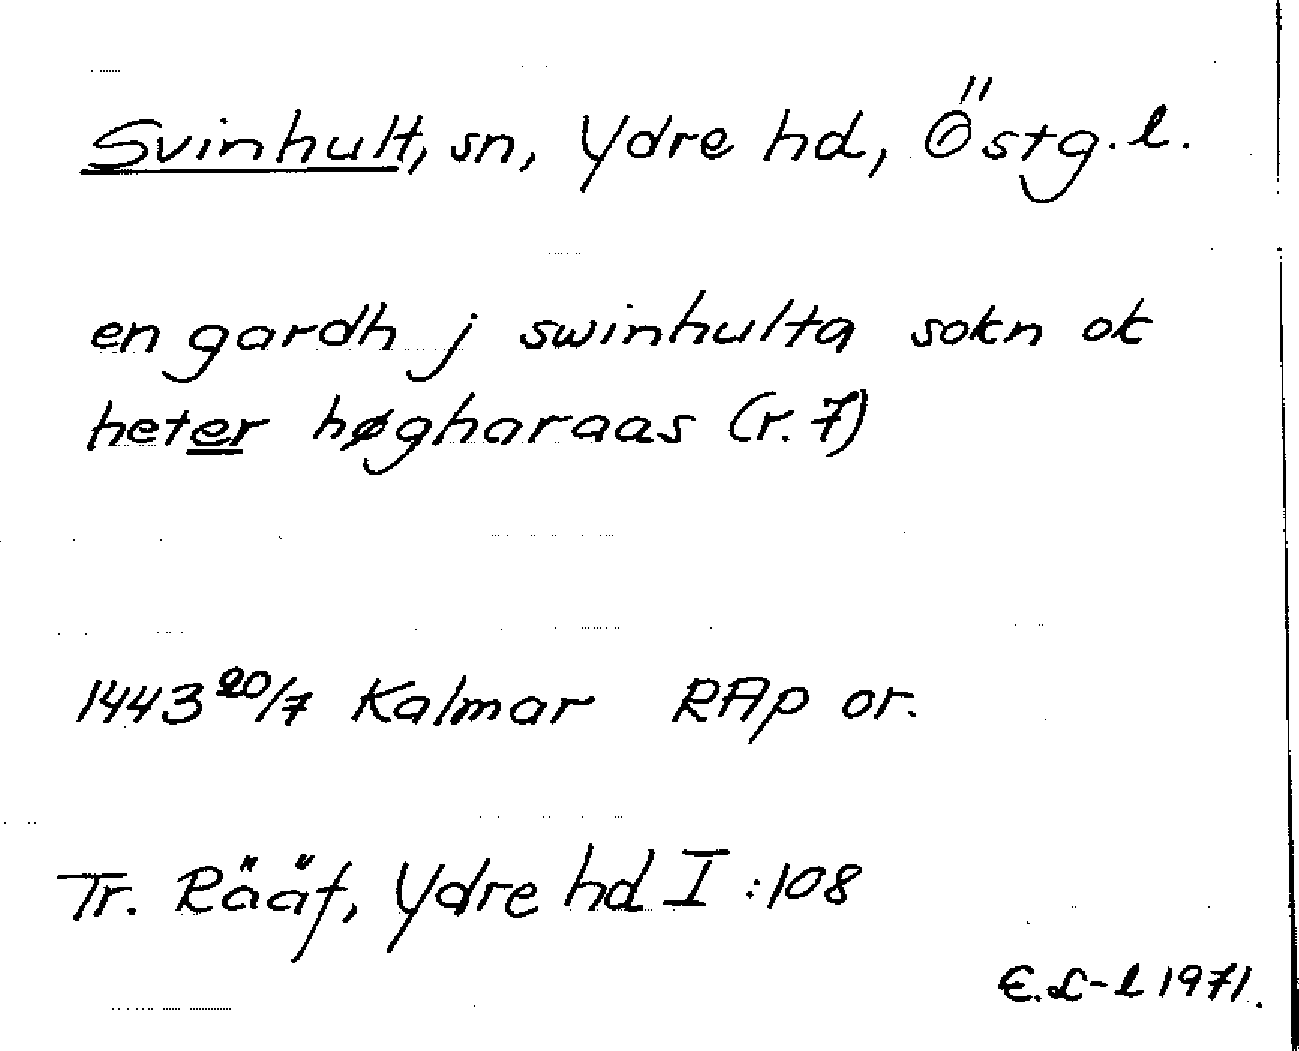 Svinhult, sn, Ydre hd, Östg.l.
en gardh j swinhulta sokn ok
heter høgharaas (r. 7)
1443 20/7 Kalmar RAp or.
Tr. Rääf, Ydre hd I :108
E.L-l 1971.